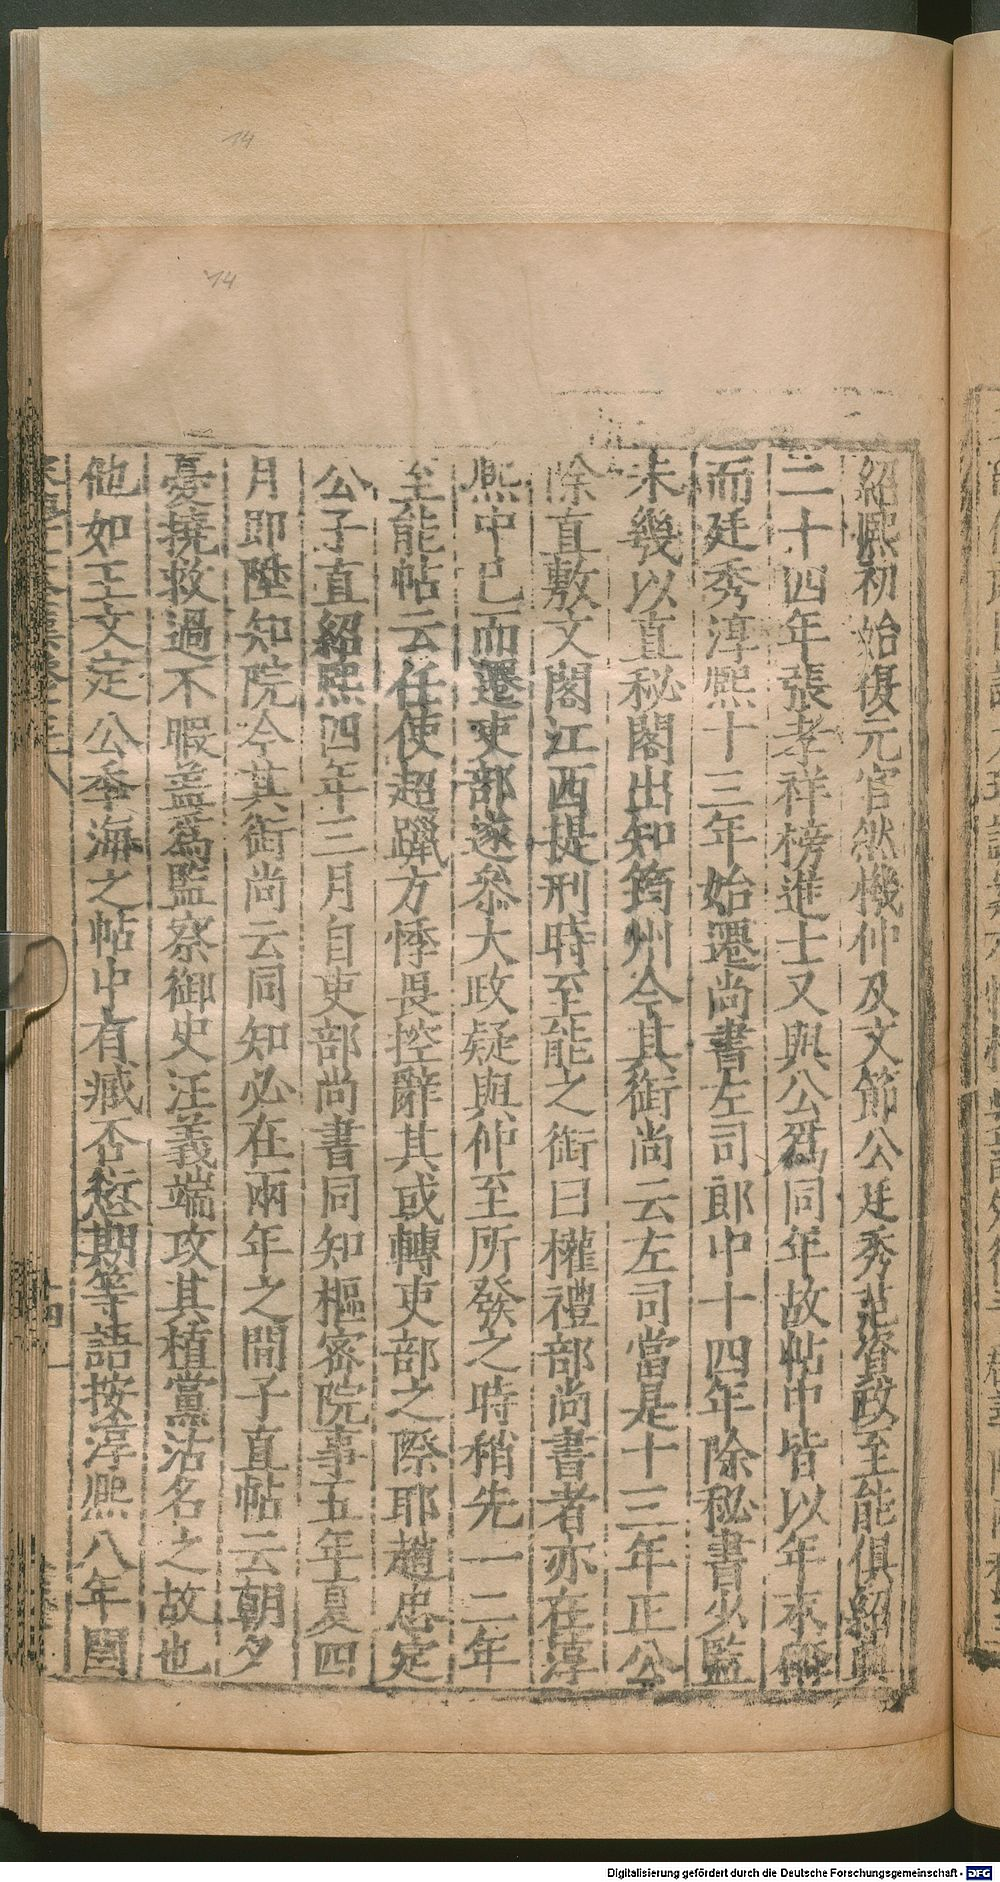 14
14
紹熈初始復元官然機仲及文節公廷秀范資政至能俱紹興
二十四年張孝祥榜進士又與公爲同年故帖中皆以年末稱
而廷秀淳熈十三年始遷尚書左司郎中十四年除秘書少監
未幾以直秘閣出知筠州今其銜尚云左司當是十三年正公
除直敷文閣江西提刑時至能之銜曰權禮部尚書者亦在淳
熈中已而遷吏部遂叅大政疑與仲至所發之時稍先一二年
至能帖云任使超躐方悸畏控辭其或轉吏部之際耶趙忠定
公子直紹熈四年三月自吏部尚書同知樞密院事五年夏四
月即陞知院今其銜尚云同知必在兩年之間子直帖云朝夕
憂撓救過不暇盖爲監察御史汪義端攻其植黨沽名之故也
他如王文定公季海之帖中有臧否衍期等語按淳熈八年閏
十四
Digitalisierung gefördert durch die Deutsche Forschungsgemeinschaft - DFG